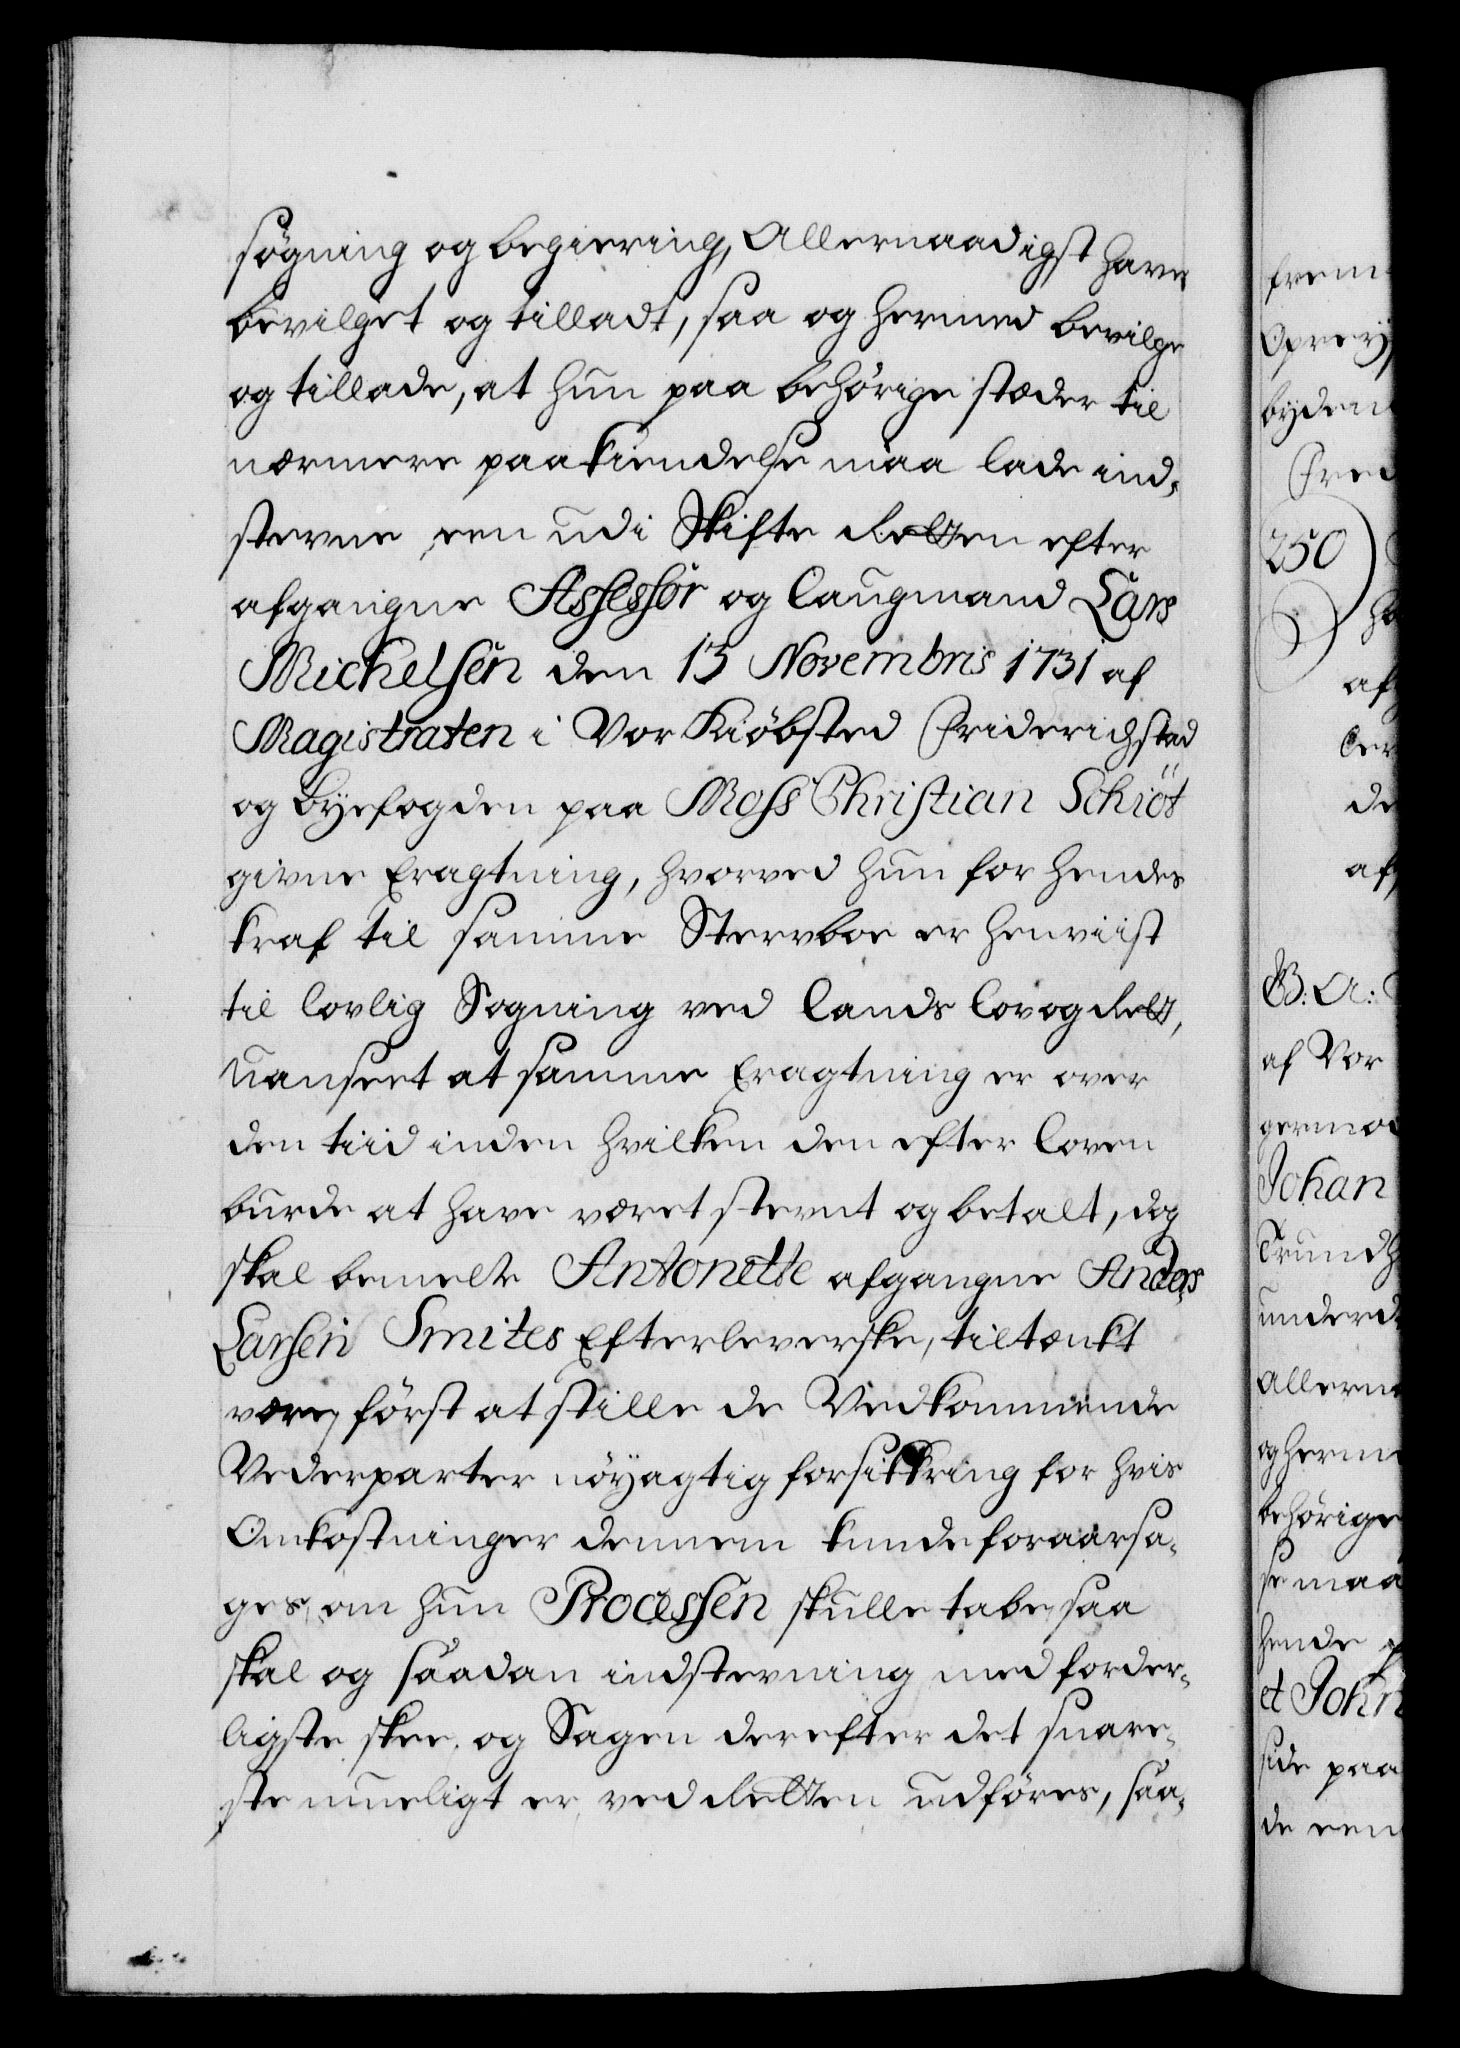 søgning og begiering, Allernaadigst have
bevilget og tilladt, saa og hermed bevilge
og tillade, at hun paa behørige stæder til
nærmere paakiendelse maa lade ind,
stevne een udi Skifte Retten efter
afgangne Assessor og Laugmand Lars
Michelsen den 13 Novembris 1731 af
Magistraten i Vor Kiøbsted Friderichstad
og byefogden paa Moss Christian Schiöt
givne Eragtning, hvorved hun for hendes
kraf til samme Stervboe er henviist
til lovlig Søgning ved Lands Lov og Rett,
uanseet at samme Eragtning er over
den tiid inden hvilken den efter Loven
burde at have været stevnt og betalt, dog
skal bemelte Antonette afgangne Anders
Larsen Smites Efterleverske, tiltænkt
være, først at stille de Vedkommende
Vederparter nøyagtig forsikkring for hvis
Omkostninger dennem kunde foraarsa,
ges, om hun Processen skulle tabe, saa
skal og saadan indstevning med forder,
ligste skee, og Sagen derefter det snare,
ste mueligt er, ved Retten udføres, saa,
frem
bydem
250
af
de
af
G: A:
af Vor
Johan
Trundh
underd
Allerna
og herm
behørige
se maa
hende
et Joh
side paa
de een